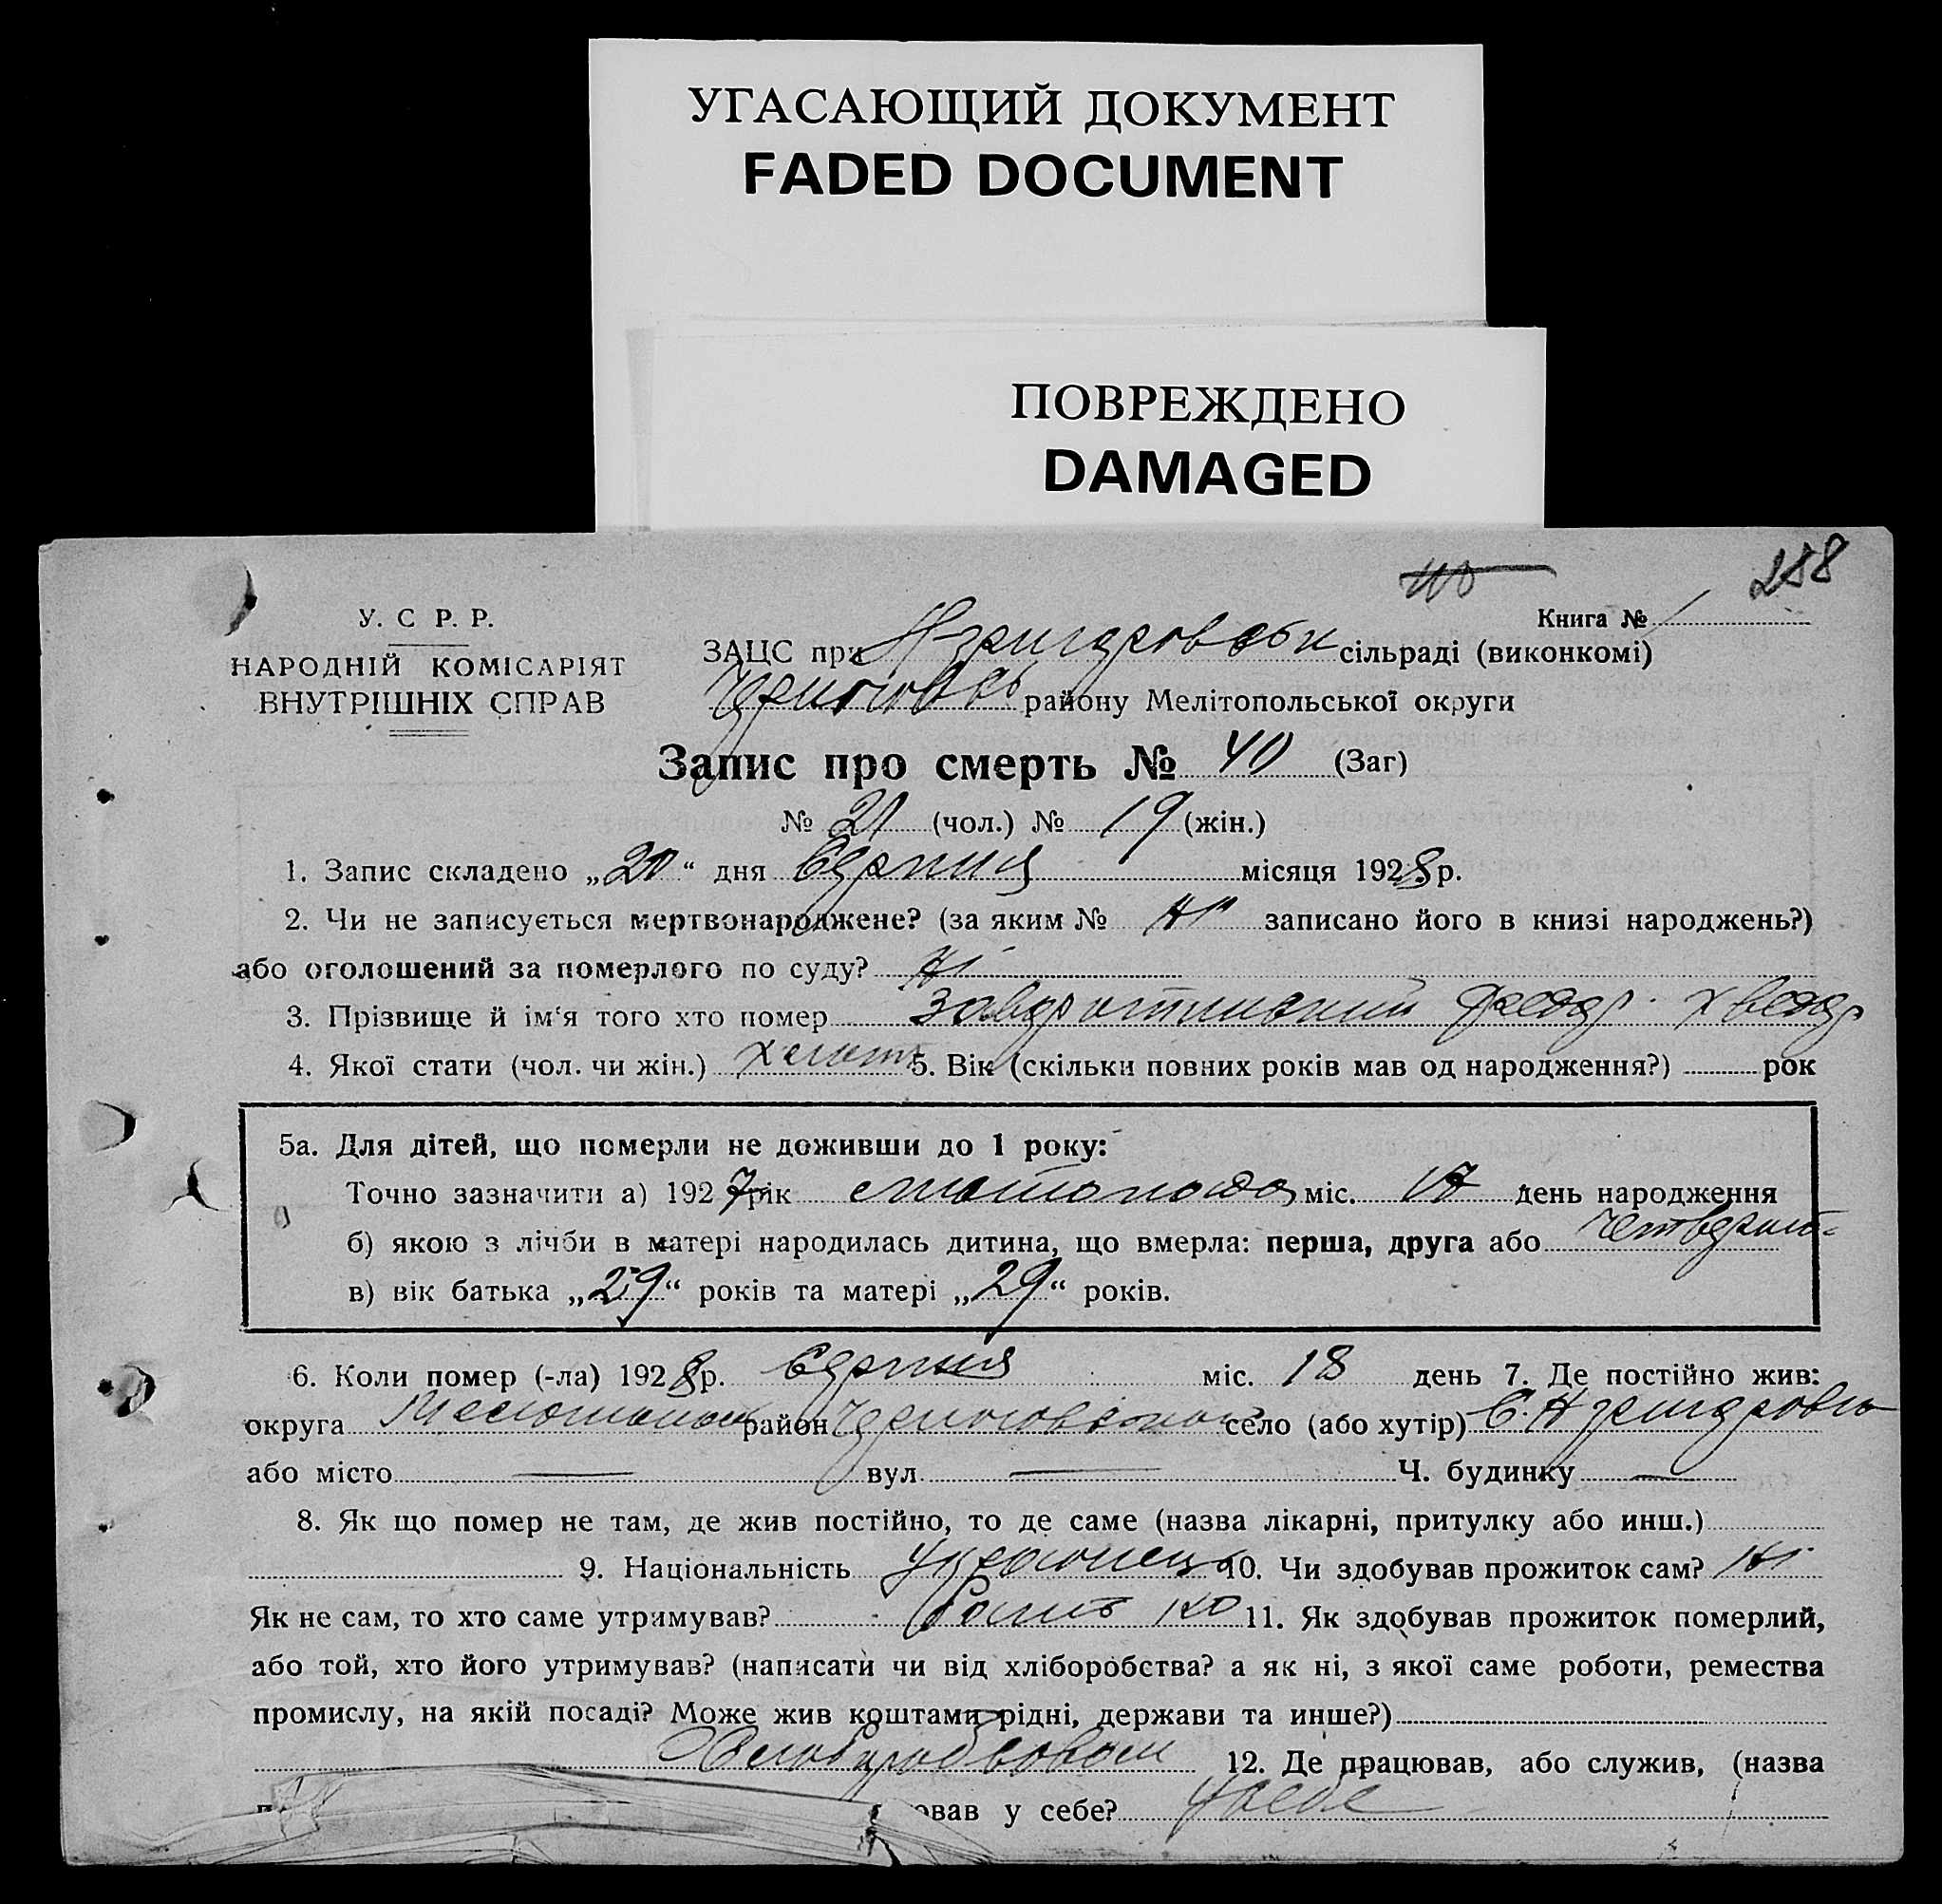 УГАСАЮЩИЙ ДОКУМЕНТ
FADED DOCUMENT
ПОВРЕЖДЕНО
DAMAGED
288
У. С Р. Р.
НАРОДНІЙ КОМІСАРІЯТ
ВНУТРІШНІХ СПРАВ
Книга №
ЗАЦС при сільраді (виконкомі)
району Мелітопольської округи
Запис про смерть № 40 (Заг)
№ 21 (чол.) № 19 (жін.)
1. Запис складено „20“ дня Серпня місяця 1928 р.
2. Чи не записується мертвонароджене? (за яким № Ні записано його в книзі народжень?)
або оголошений за померлого по суду? Ні
3. Прізвище й ім‘я того хто помер Федор
4. Якої стати (чол. чи жін.) 5. Вік (скільки повних років мав од народження?) рок
5а. Для дітей, що померли не доживши до 1 року:
Точно зазначити а) 1927 рік листопада міс. 17 день народження
б) якою з лічби в матері народилась дитина, що вмерла: перша, друга або
в) вік батька „29“ років та матері „29“ років.
6. Коли помер (-ла) 1928 р. Серпня міс. 18 день 7. Де постійно жив:
округа район село (або хутір) С.
або місто — вул. — Ч. будинку —
8. Як що помер не там, де жив постійно, то де саме (назва лікарні, притулку або инш.)
9. Національність Українець 10. Чи здобував прожиток сам? Ні
Як не сам, то хто саме утримував? Батько 11. Як здобував прожиток померлий,
або той, хто його утримував? (написати чи від хліборобства? а як ні, з якої саме роботи, ремества
промислу, на якій посаді? Може жив коштами рідні, держави та инше?)
12. Де працював, або служив, (назва
овав у себе? У себе